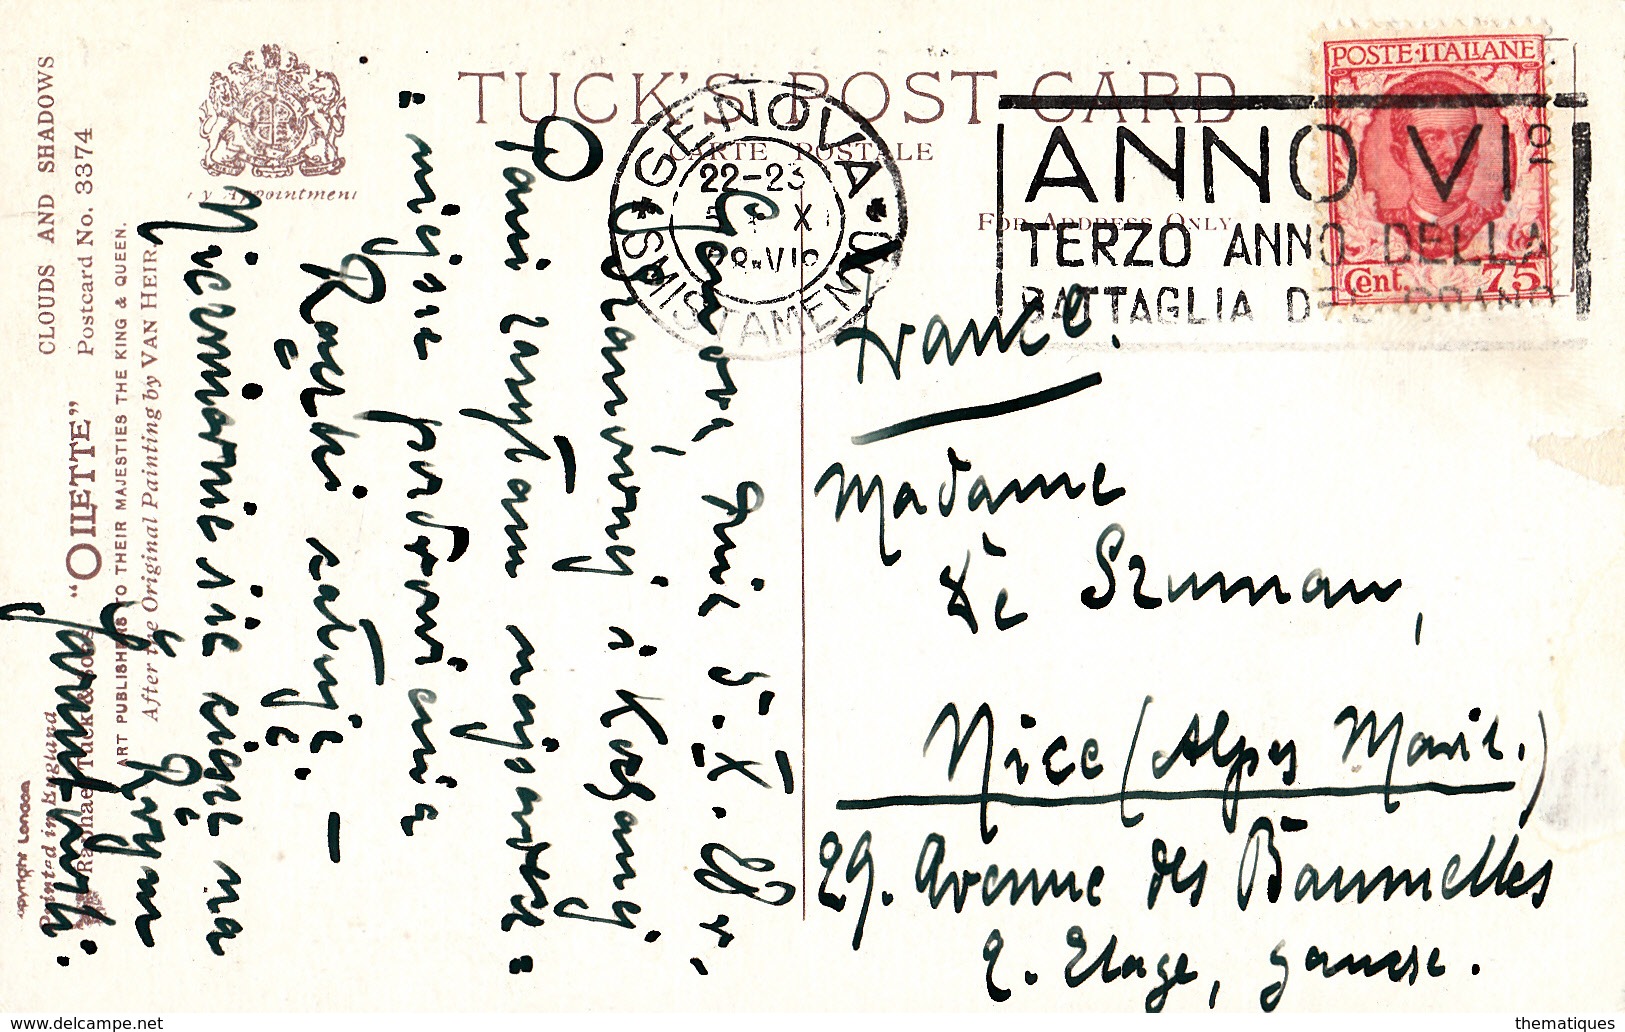 CLOUDS AND SHADOWS
Postcard No. 3374
"OILETTE"
ART PUBLISHERS TO THEIR MAJESTIES THE KING & QUEEN.
After the Original Painting by VAN HEIR.
Raphael Tuck & Sons
Printed in England
Copyright London
By Appointment
TUCK'S POST CARD
CARTE POSTALE
FOR ADDRESS ONLY
GENOVA
22-23
X
SMISTAMENTO
ANNO VIº
TERZO ANNO DELLA
BATTAGLIA DEL GRANO
POSTE·ITALIANE
Cent. 75
Genova, dnia 5. X. 28 r.
Szanownej i Kochanej
Pani
najser=
=niejsze pozdrowienia
Rączki całuję. —
Niezmiernie się cieszę na
France.
Madame
de Szuman,
Nice (Alpes Marit.)
29. Avenue des Baumettes
2. Etage, gauche.
thematiques
www.delcampe.net